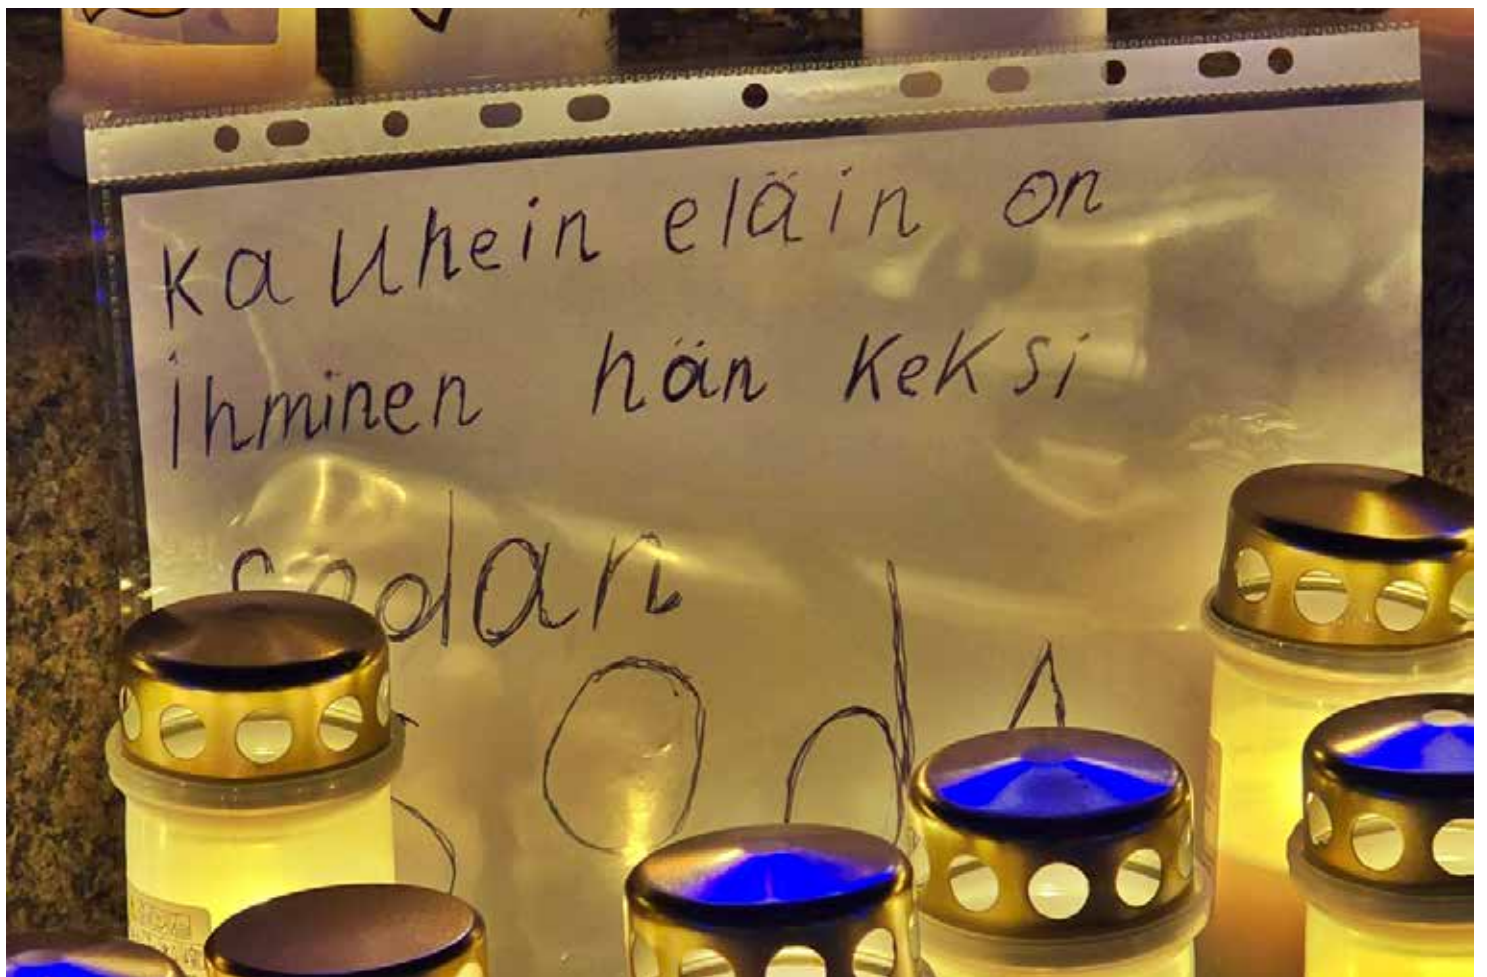 Kauhein eläin on
ihminen hän keksi
sodan